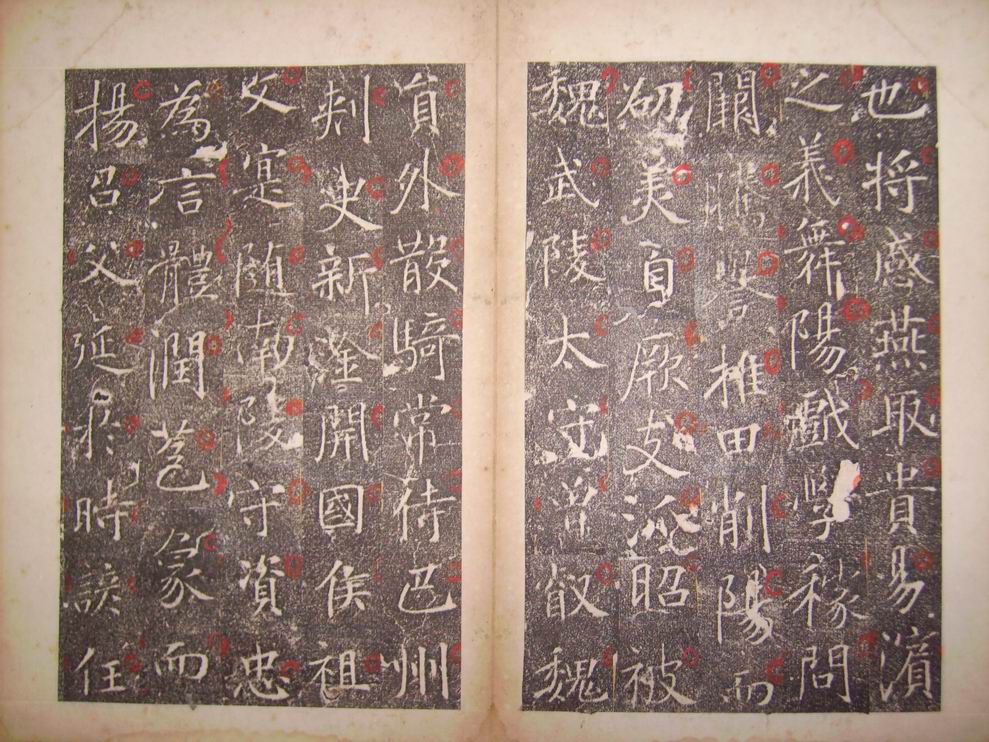 也將感燕取貴易濱
之義舞陽戲學稼問
譽推田削陽而
劭美自厥支派昭被
魏武陵太守曾叡魏
員外散騎常侍巴州
刺史新淦開國侯祖
文寔隨南陵守資忠
為言體潤苞蒙而
揚呂父延於時談任